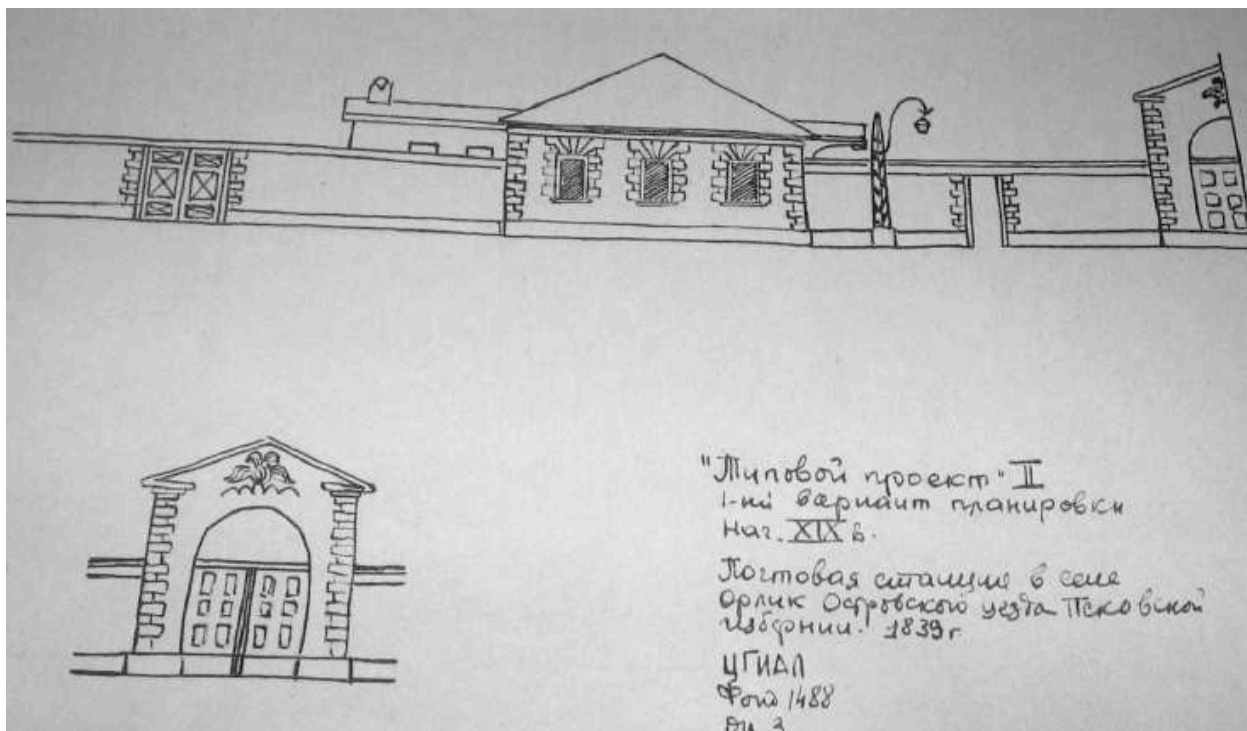 "Типовой проект" II
1-ый вариант планировки
Нач. XIX в.
Почтовая станция в селе
Орлик Островского уезда Псковской
губернии. 1839 г
ЦГИАЛ
Фонд 1488
Оп. 3